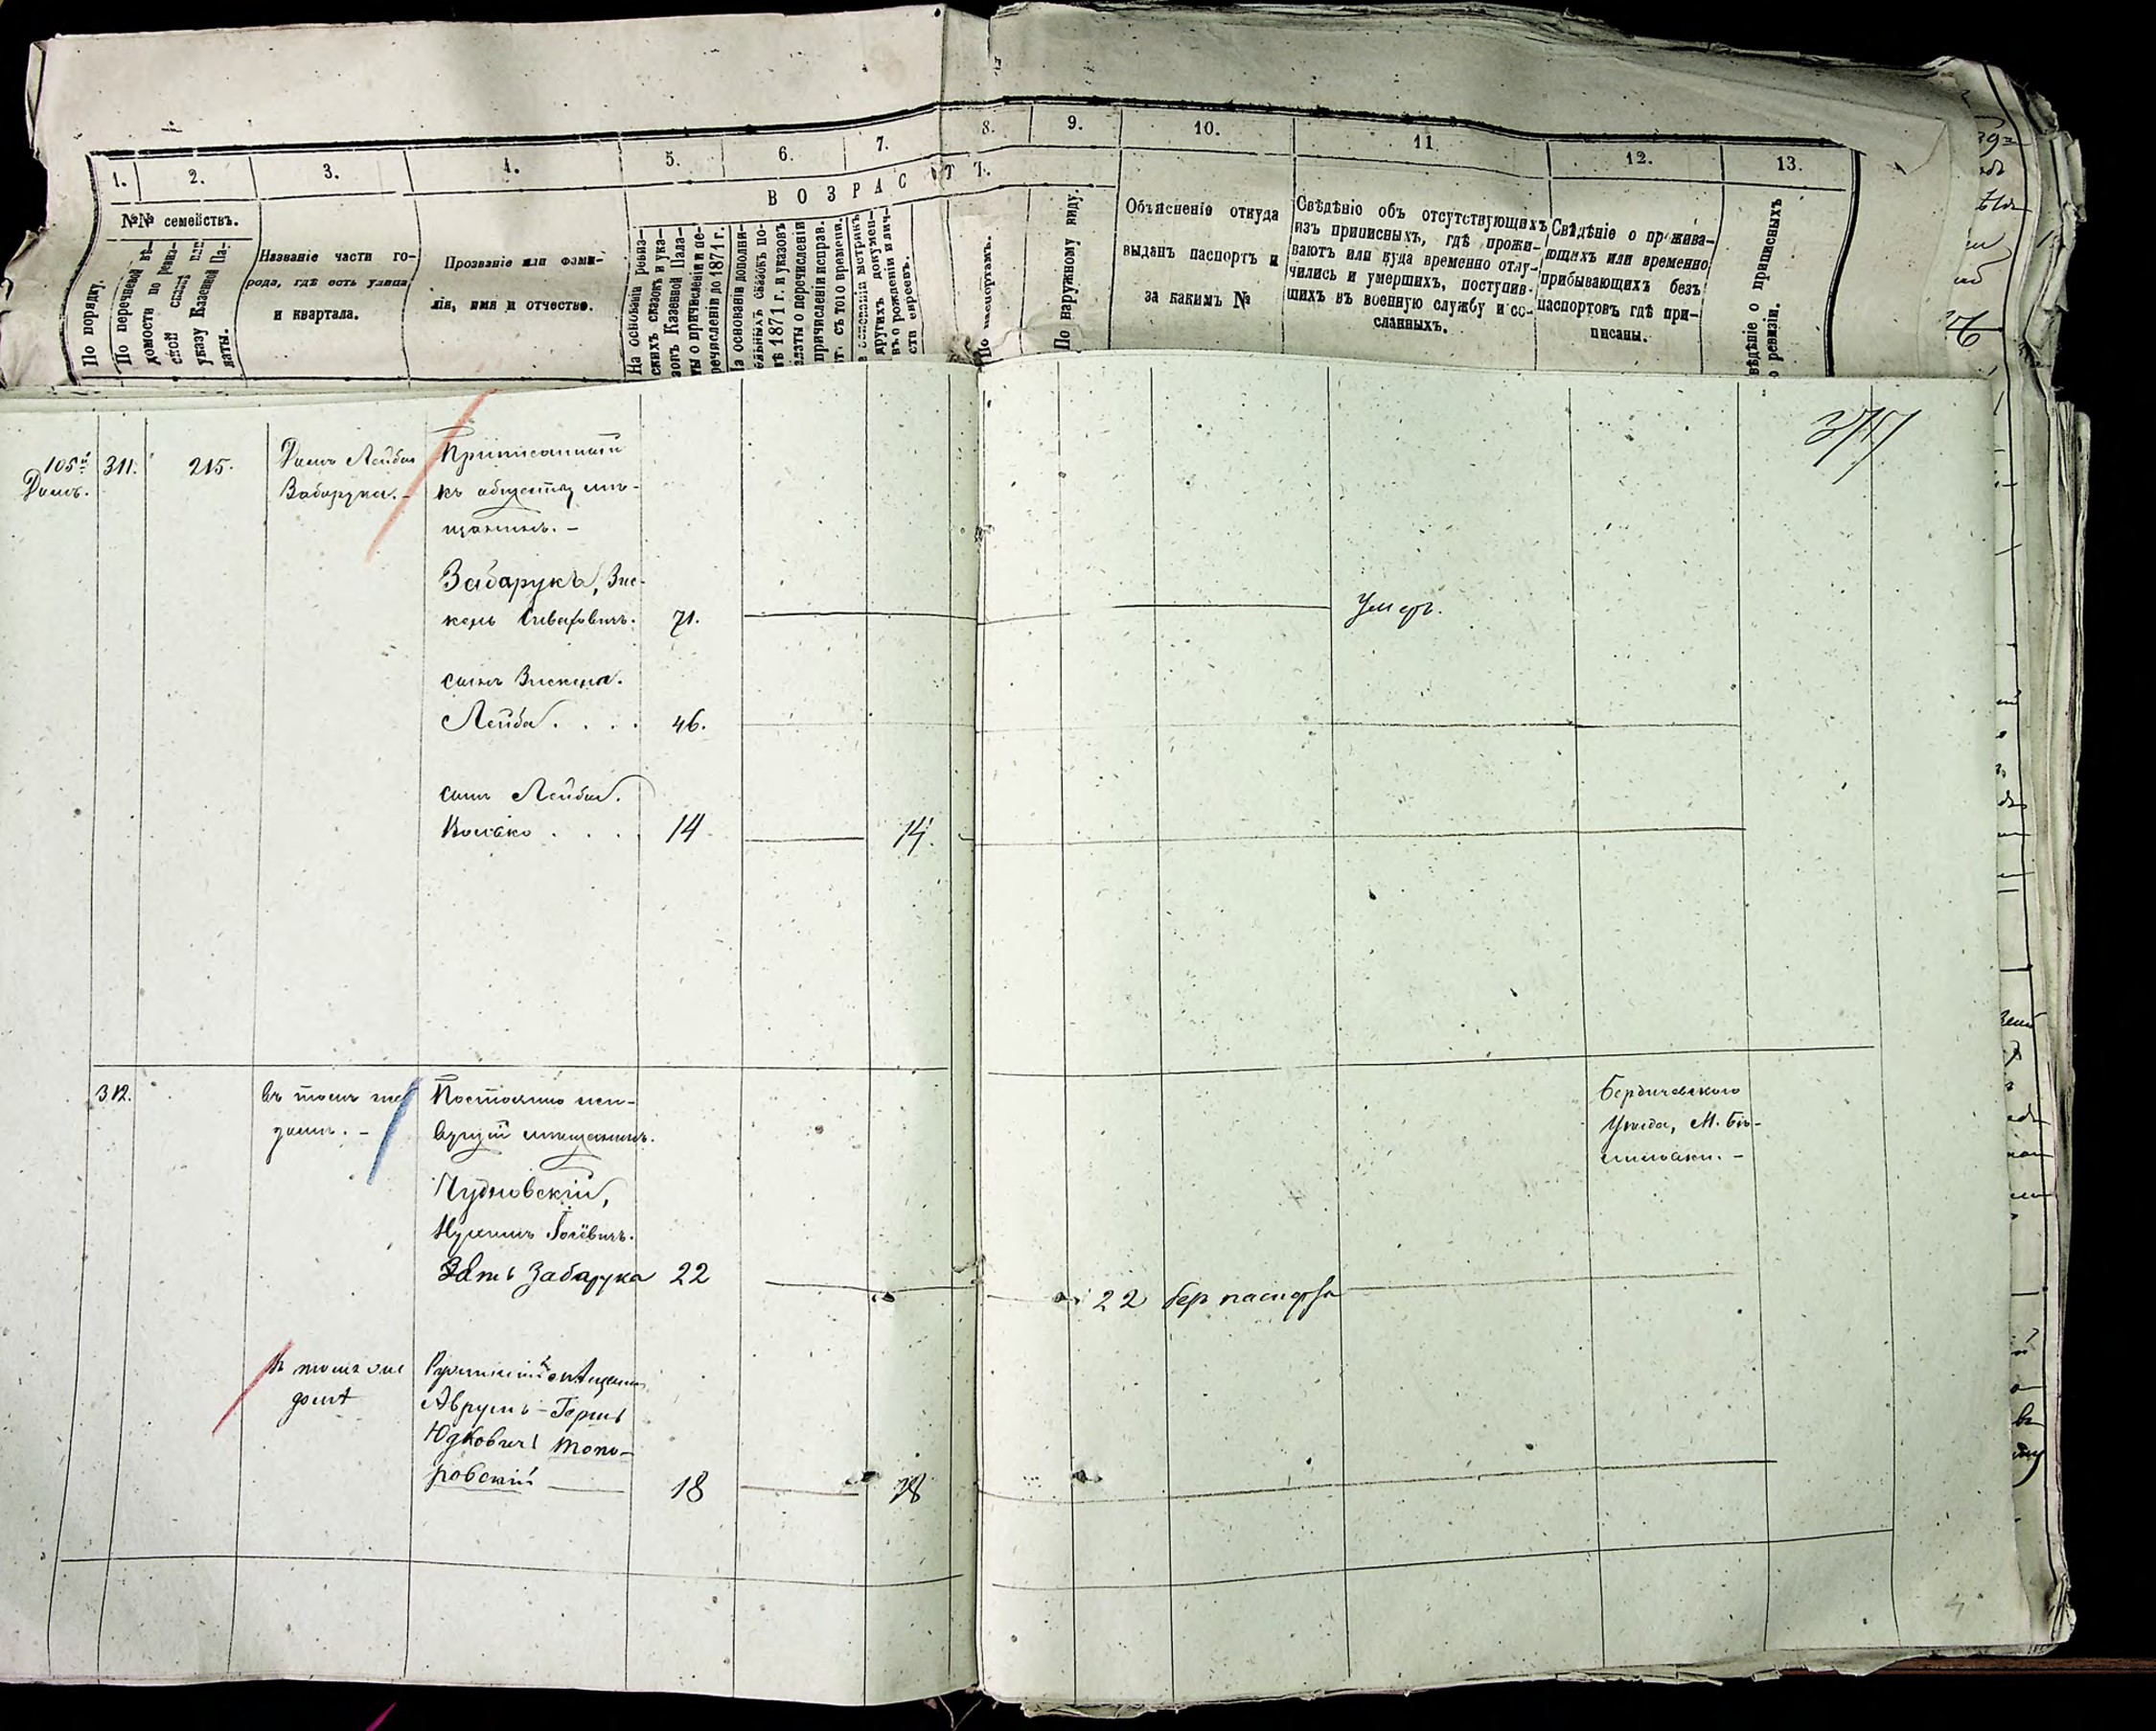 1.
2.
3.
4.
5.
6.
7.
8.
9.
10.
11.
12.
13.
ВОЗРАСТЪ.
№№ семействъ.
По порядку.
По перечневой вѣ-
домости по ревиз-
ской сказкѣ или
указу Казенной Па-
латы.
Названіе части го-
рода, гдѣ есть улица
и квартала.
Прозваніе или фами-
лія, имя и отчество.
На основаніи ревиз-
скихъ сказокъ и ука-
зовъ Казенной Пала-
ты о причисленіи и пе-
речисленіи до 1871 г.
а основаніи дополни-
ельныхъ сказокъ по-
лѣ 1871 г. и указовъ
алаты о перечисленіи
причисленіи исправ.
ит. съ того времени.
основаніи метрикъ
другихъ докумен-
въ о рожденіи и лич-
сти евреевъ.
По паспортамъ.
По наружному виду.
Объясненіе откуда
выданъ паспортъ и
за какимъ №
Свѣдѣніе объ отсутствующихъ
изъ приписныхъ, гдѣ прожи-
ваютъ или куда временно отлу-
чились и умершихъ, поступив-
шихъ въ военную службу и со-
сланныхъ.
Свѣдѣніе о прожива-
ющихъ или временно
прибывающихъ безъ
паспортовъ гдѣ при-
писаны.
вѣдѣніе о приписныхъ
о ревизіи.
105й
Домъ.
311.
215.
Домъ Лейбы
Забарука.-
Приписанный
къ обществу мѣ-
щанинъ. -
Забарукъ, Зис-
кель
71.
Умеръ.
сынъ Зискеля.
Лейба . . . .
46.
сынъ Лейбы.
14
14.
312.
въ томъ же
домѣ. -
Постоянно жи-
вущій мѣщанинъ.
Чудновскій,
Зять Забарука
22
22 безъ паспорта
Бердичевскаго
Уѣзда, М. Бѣ-
лиловки. -
въ томъ же
домѣ
мѣщанинъ
Аврумъ-Гершъ
Юдковичъ Топо-
ровскій
18
18